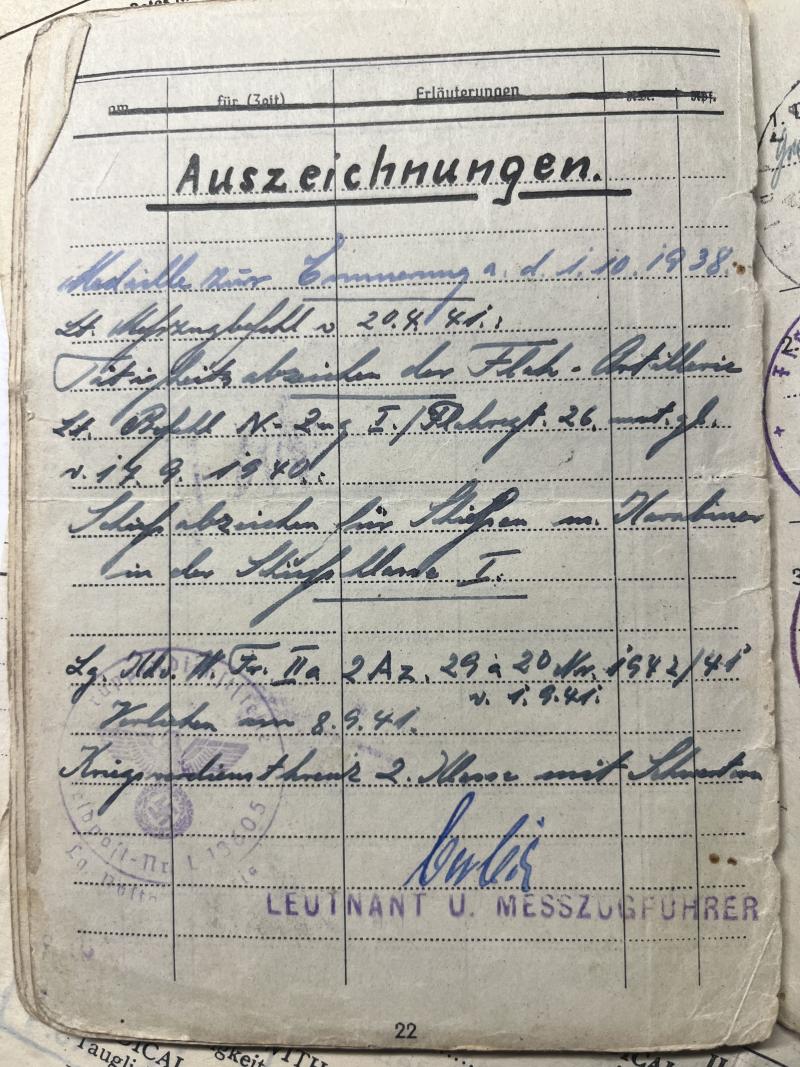 am für (Zeit) Erläuterungen RM. Rpf.
Auszeichnungen.
Medaille zur Erinnerung a. d. 1.10.1938.
Lt. Meßzugbefehl v. 20.4.41.:
Tätigkeitsabzeichen der Flak-Artillerie
Lt. Befehl N-Zug I./Flakregt. 26. mot. gl.
v. 17.9.1940.:
Schießabzeichen für Schießen m. Karabiner
in der Schießklasse I.
Lg. Kdo. W. Fr. IIa 2 Az. 29 a 20 Nr. 1942/41
v. 1.9.41.
Verliehen am 8.9.41.
Kriegsverdienstkreuz 2. Klasse mit Schwertern
LEUTNANT U. MESSZUGFÜHRER
Feldpost-Nr. L 13605
22